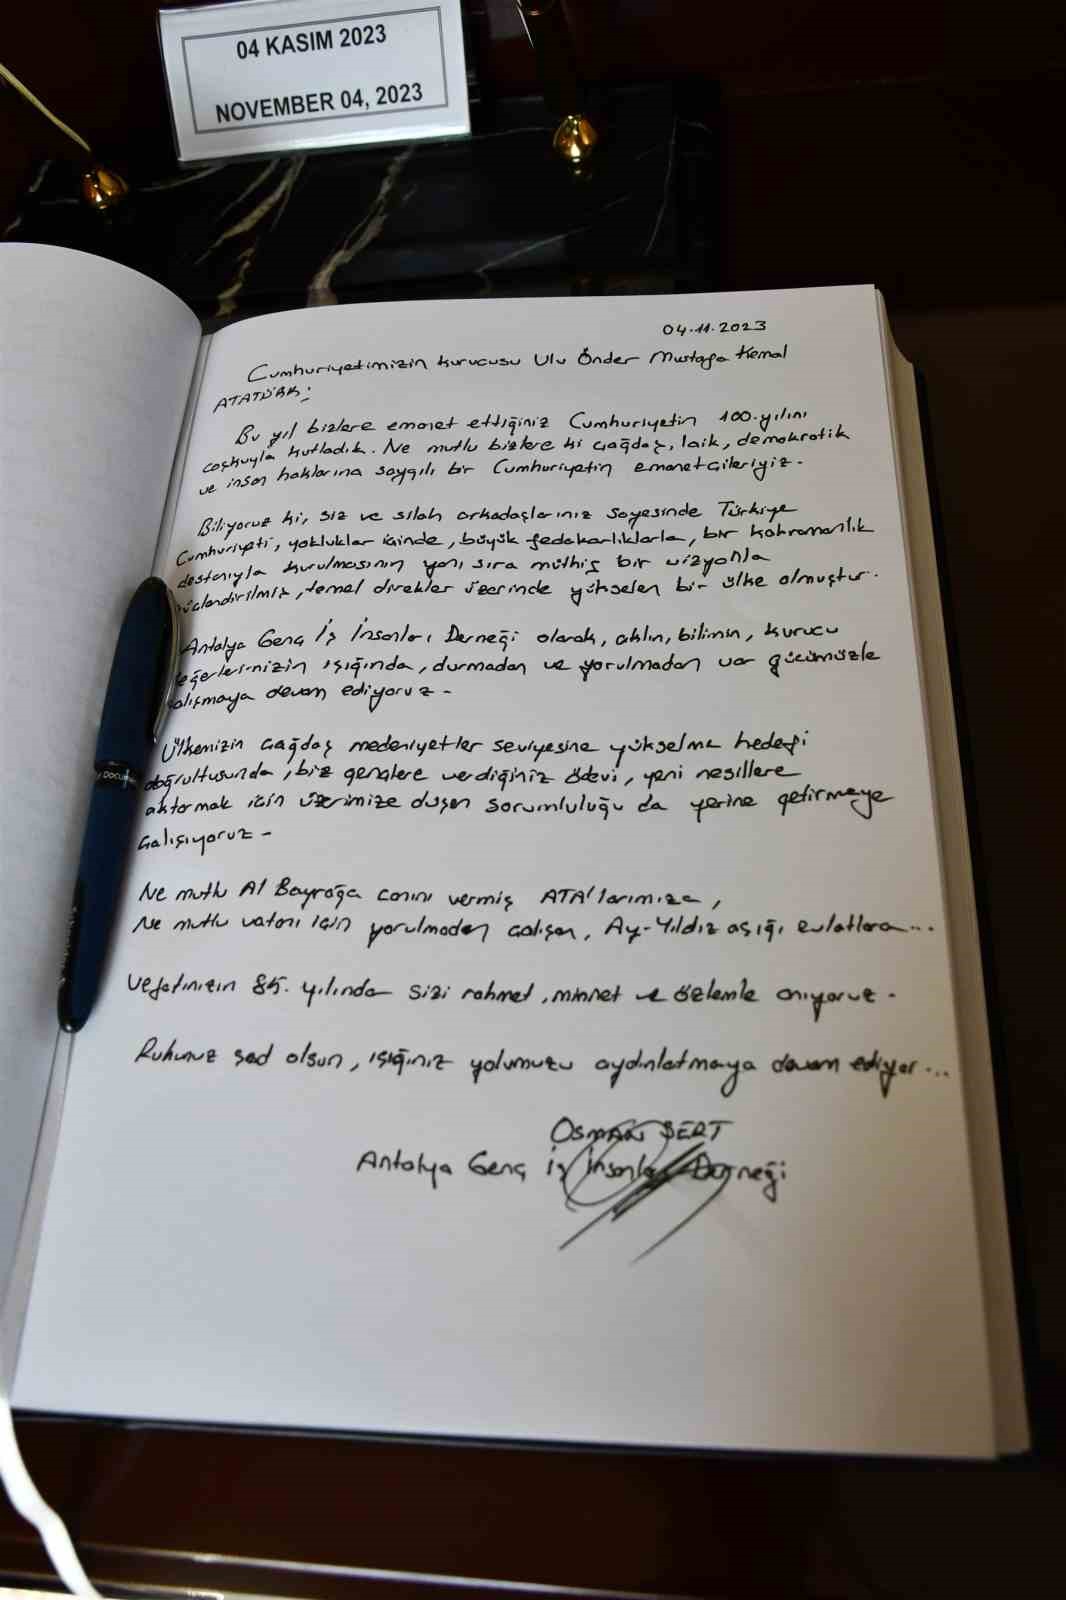 04 KASIM 2023
NOVEMBER 04, 2023
04.11.2023
Cumhuriyetimizin kurucusu Ulu Önder Mustafa Kemal
ATATÜRK;
Bu yıl bizlere emanet ettiğiniz Cumhuriyetin 100.yılını
coşkuyla kutladık. Ne mutlu bizlere ki çağdaş, laik, demokratik
ve insan haklarına saygılı bir Cumhuriyetin emanetçileriyiz.
Biliyoruz ki, siz ve silah arkadaşlarınız sayesinde Türkiye
Cumhuriyeti, yokluklar içinde, büyük fedakarlıklarla, bir kahramanlık
destanıyla kurulmasının yanı sıra müthiş bir vizyonla
güçlendirilmiş, temel direkler üzerinde yükselen bir ülke olmuştur.
Antalya Genç İş İnsanları Derneği olarak, aklın, bilimin, kurucu
değerlerinizin ışığında, durmadan ve yorulmadan var gücümüzle
çalışmaya devam ediyoruz.
Ülkemizin çağdaş medeniyetler seviyesine yükselme hedefi
doğrultusunda, biz gençlere verdiğiniz ödevi, yeni nesillere
aktarmak için üzerimize düşen sorumluluğu da yerine getirmeye
çalışıyoruz.
Ne mutlu Al Bayrağa canını vermiş ATA'larımıza,
Ne mutlu vatanı için yorulmadan çalışan, Ay-Yıldız aşığı evlatlara...
Vefatınızın 85. yılında sizi rahmet, minnet ve özlemle anıyoruz.
Ruhunuz şad olsun, ışığınız yolumuzu aydınlatmaya devam ediyor...
OSMAN SERT
Antalya Genç İş İnsanları Derneği